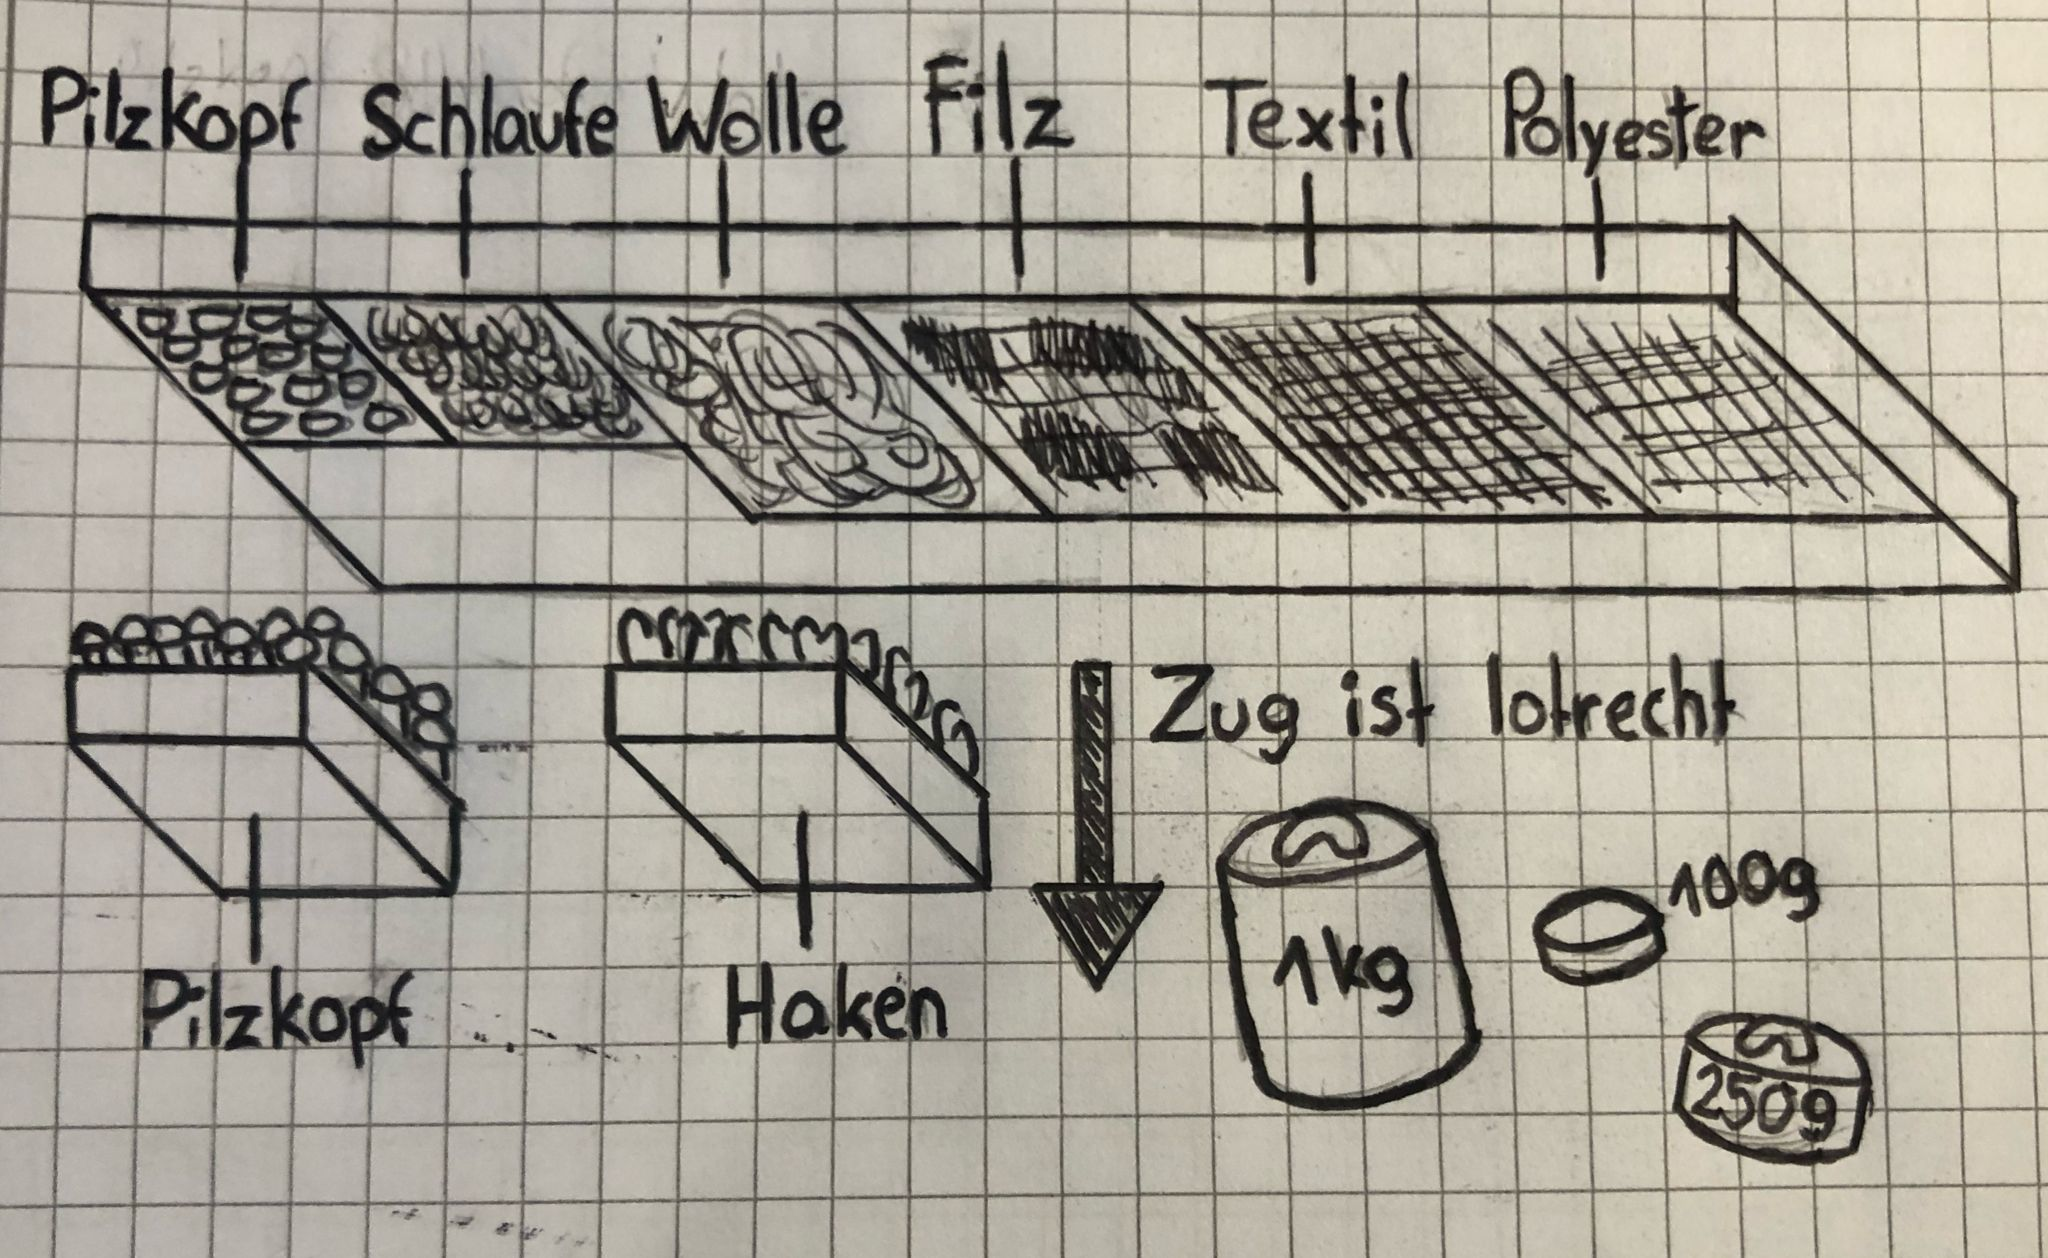 Pilzkopf Schlaufe Wolle Filz Textil Polyester
Zug ist lotrecht
100g
1kg
250g
Pilzkopf Haken